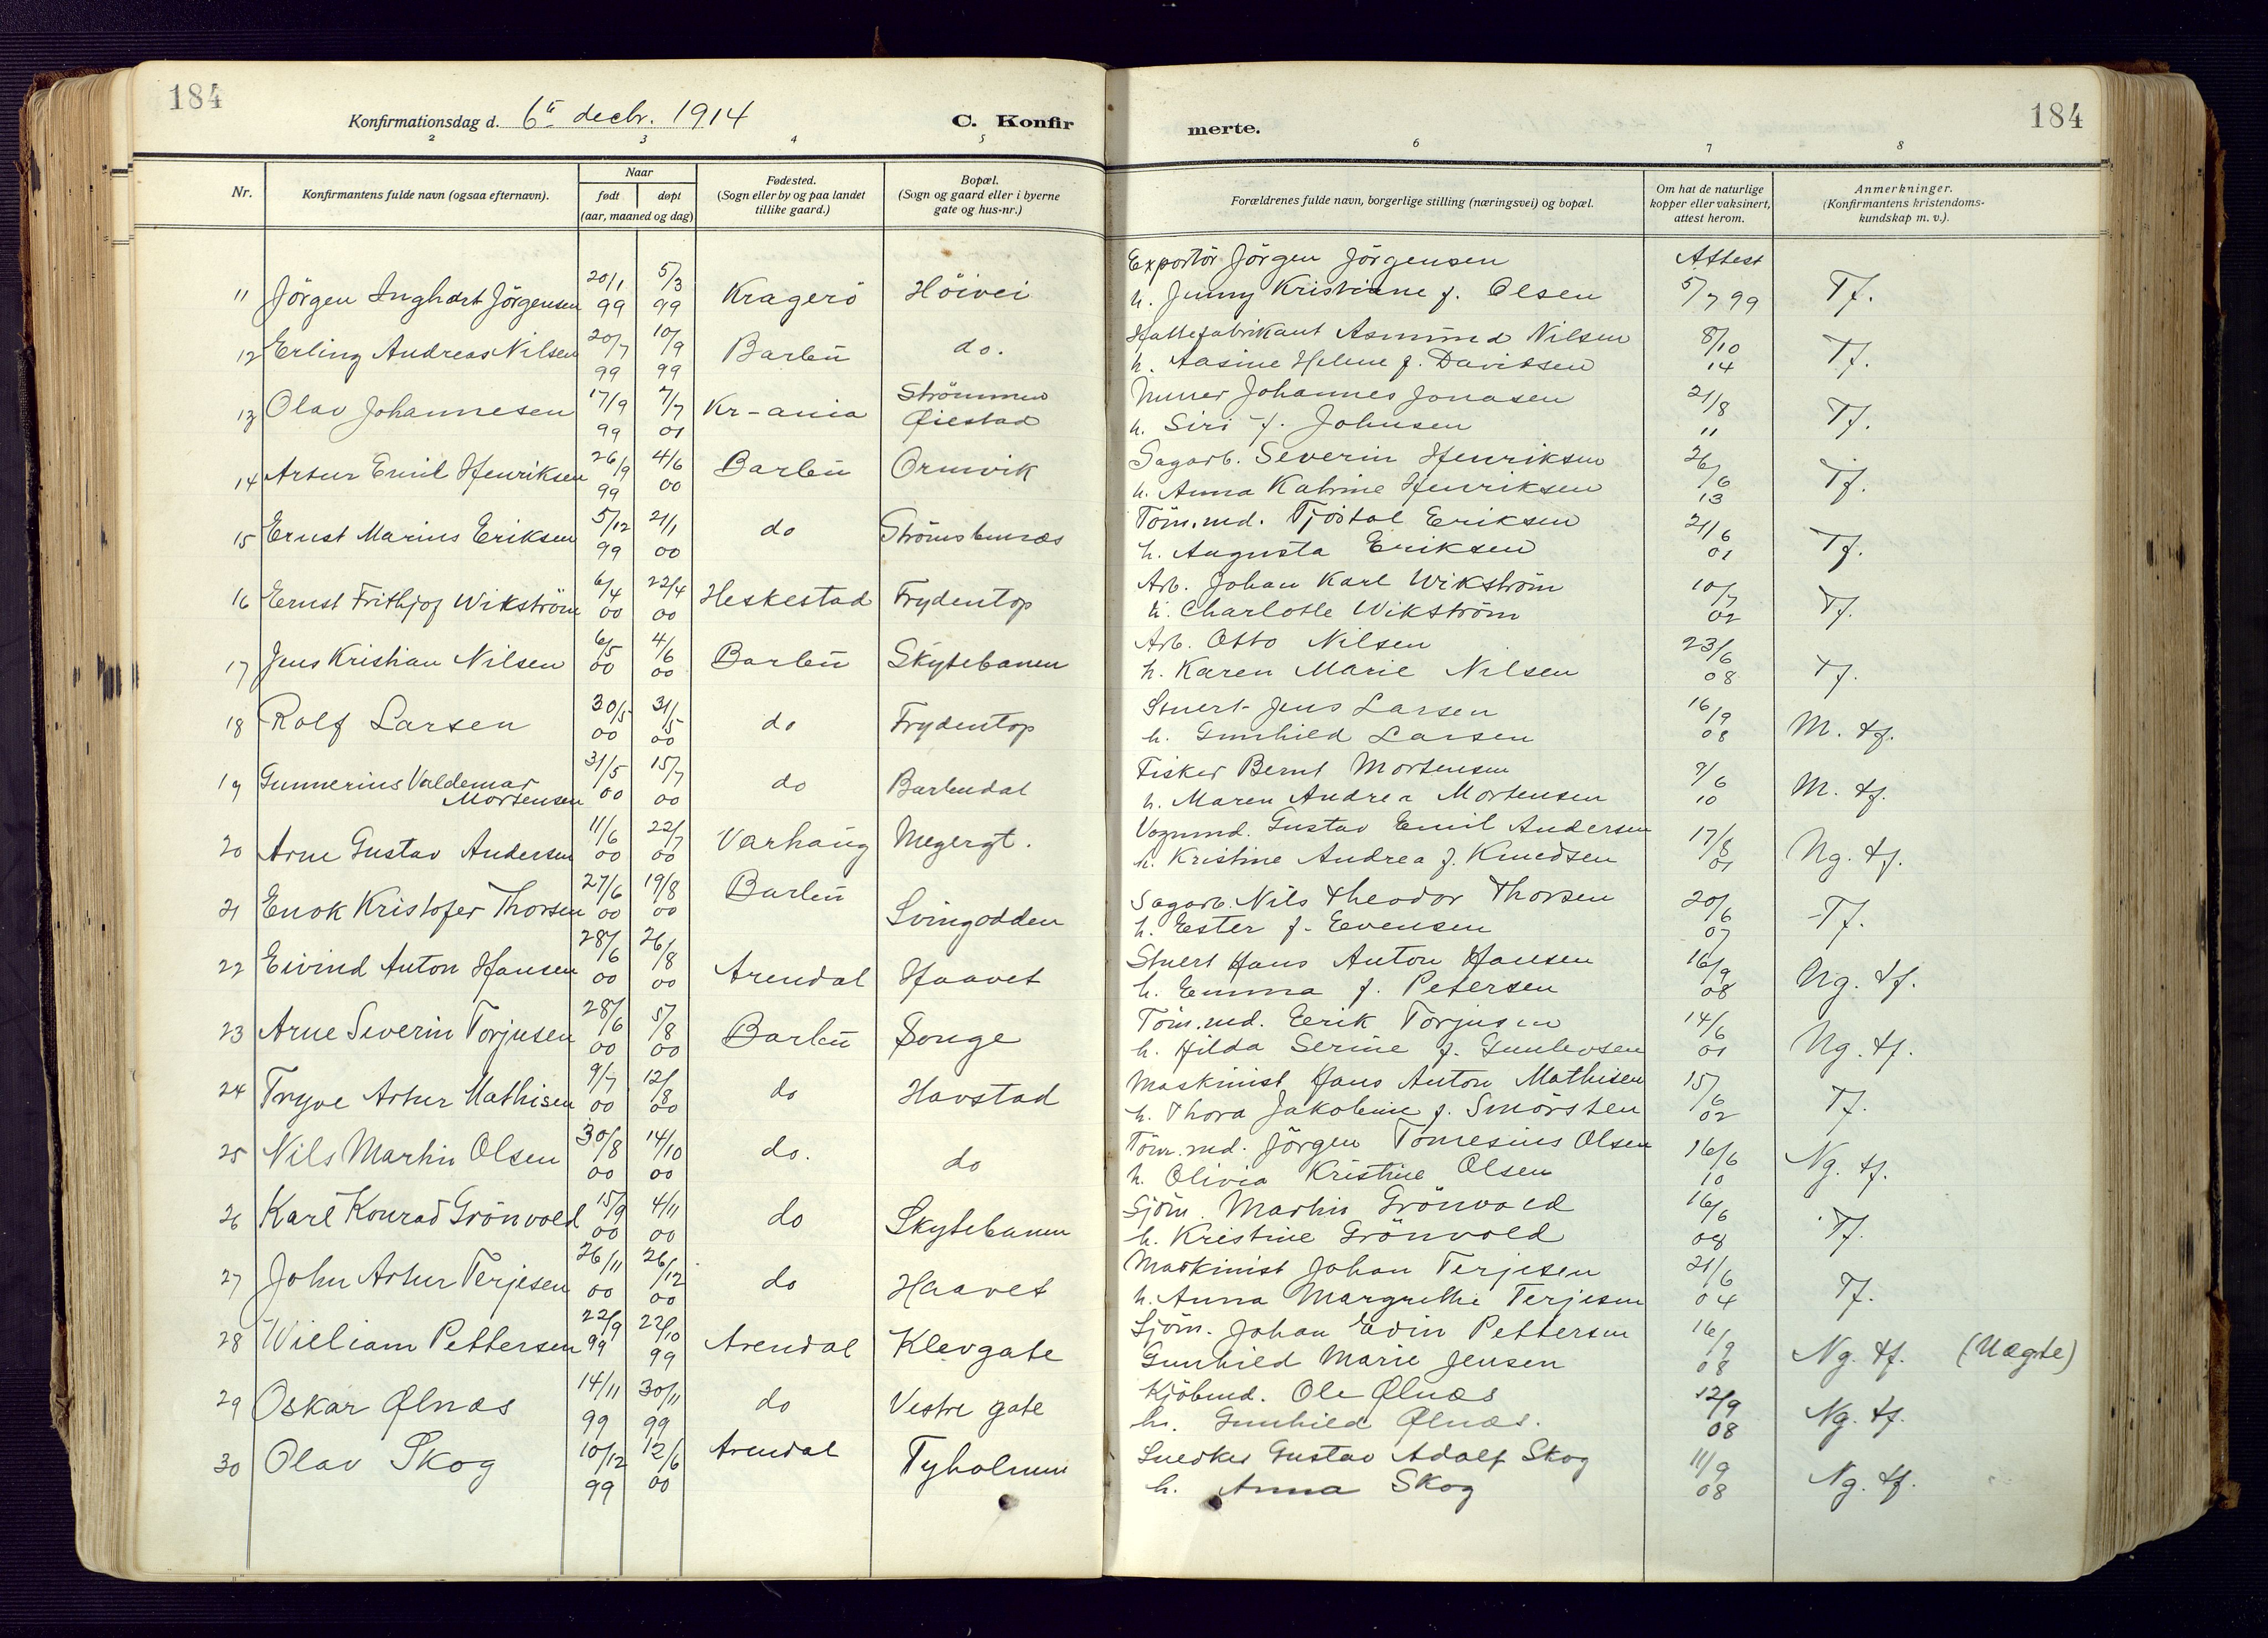 184
Konfirmationsdag d. 6te decbr. 1914
C. Konfir
merte.
184
2 3 4 5 6 7 8
Nr.
Konfirmantens fulde navn (ogsaa efternavn).
Naar
født døpt
(aar, maaned og dag)
Fødested.
(Sogn eller by og paa landet
tillike gaard.)
Bopæl.
(Sogn og gaard eller i byerne
gate og hus-nr.)
Forældrenes fulde navn, borgerlige stilling (næringsvei) og bopæl.
Om hat de naturlige
kopper eller vaksinert,
attest herom.
Anmerkninger.
(Konfirmantens kristendoms-
kundskap m. v.).
11 Jörgen Inghart Jörgensen 20/1 99 5/3 99 Kragerö Höivei
Exportör Jörgen Jörgensen
h. Jenny Kristiane f. Olsen
Attest 5/7 99 Tf.
12 Erling Andreas Nilsen 20/7 99 10/9 99 Barbu do.
Hattefabrikant Asmund Nilsen
h. Aasine Helene f. Davidsen
8/10 14 Tf.
13 Olav Johannesen 17/9 99 7/7 01 Kr-ania Strömmen
Øiestad
Murer Johannes Jonasen
h. Siri f. Johnsen
21/8 11 Tf.
14 Artur Emil Henriksen 26/9 99 4/6 00 Barbu Ormvik
Sagarb. Severin Henriksen
h. Anna Katrine Henriksen
26/6 13 Tf.
15 Ernst Marius Eriksen 5/12 99 21/1 00 do Strömsbunæs
Töm.md. Tjöstol Eriksen
h. Augusta Eriksen
21/6 01 Tf.
16 Ernst Frithjof Wikström 6/4 00 22/4 00 Heskestad Frydentop
Arb. Johan Karl Wikström
h. Charlotte Wikström
10/7 02 Tf.
17 Jens Kristian Nilsen 6/5 00 4/6 00 Barbu Skytebanen
Arb. Otto Nilsen
h. Karen Marie Nilsen
23/6 08 Tf.
18 Rolf Larsen 30/5 00 31/5 00 do Frydentop
Stuert Jens Larsen
h. Gunhild Larsen
16/9 08 M. tf.
19 Gunnerius Valdemar
Mortensen 31/5 00 15/7 00 do Barbudal
Fisker Bernt Mortensen
h. Maren Andrea Mortensen
9/6 10 M. tf.
20 Arne Gustav Andersen 11/6 00 22/7 00 Varhaug Megergt.
Vognmd. Gustav Emil Andersen
h. Kristine Andrea f. Knudsen
17/8 01 Ng. tf.
21 Enok Kristofer Thorsen 27/6 00 19/8 00 Barbu Svingodden
Sagarb. Nils Theodor Thorsen
h. Ester f. Evensen
20/6 07 Tf.
22 Eivind Anton Hansen 28/6 00 26/8 00 Arendal Haavet
Stuert Hans Anton Hansen
h. Emma f. Petersen
16/9 08 Ng. tf.
23 Arne Severin Torjusen 28/6 00 5/8 00 Barbu Songe
Töm.md. Eerik Torjusen
h. Hilda Serine f. Gunlevsen
14/6 01 Ng. tf.
24 Trygve Artur Mathisen 9/7 00 12/8 00 do Havstad
Maskinist Hans Anton Mathisen
h. Thora Jakobine f. Smörsten
15/6 02 Tf.
25 Nils Martin Olsen 30/8 00 14/10 00 do. do
Töm.md. Jörgen Tomesius Olsen
h. Olivia Kristine Olsen
16/6 10 Ng. tf.
26 Karl Konrad Grönvold 15/9 00 4/11 00 do Skytebanen
Sjöm. Martin Grönvold
h. Kristine Grönvold
16/6 08 Tf.
27 John Artur Terjesen 26/11 00 26/12 00 do Haavet
Maskinist Johan Terjesen
h. Anna Margrethe Terjesen
21/6 04 Tf.
28 William Pettersen 22/9 99 22/10 99 Arendal Klevgate
Sjöm. Johan Edvin Pettersen
Gunhild Marie Jensen
16/9 08 Ng. tf. (Uægte)
29 Oskar Ølnæs 14/11 99 30/11 99 do Vestre gate
Kjöbmd. Ole Ølnæs
h. Gunhild Ølnæs.
12/9 08 Ng. tf.
30 Olav Skog 10/12 99 12/6 00 Arendal Tyholmen
Snedker Gustav Adolf Skog
h. Anna Skog
11/9 08 Ng. tf.